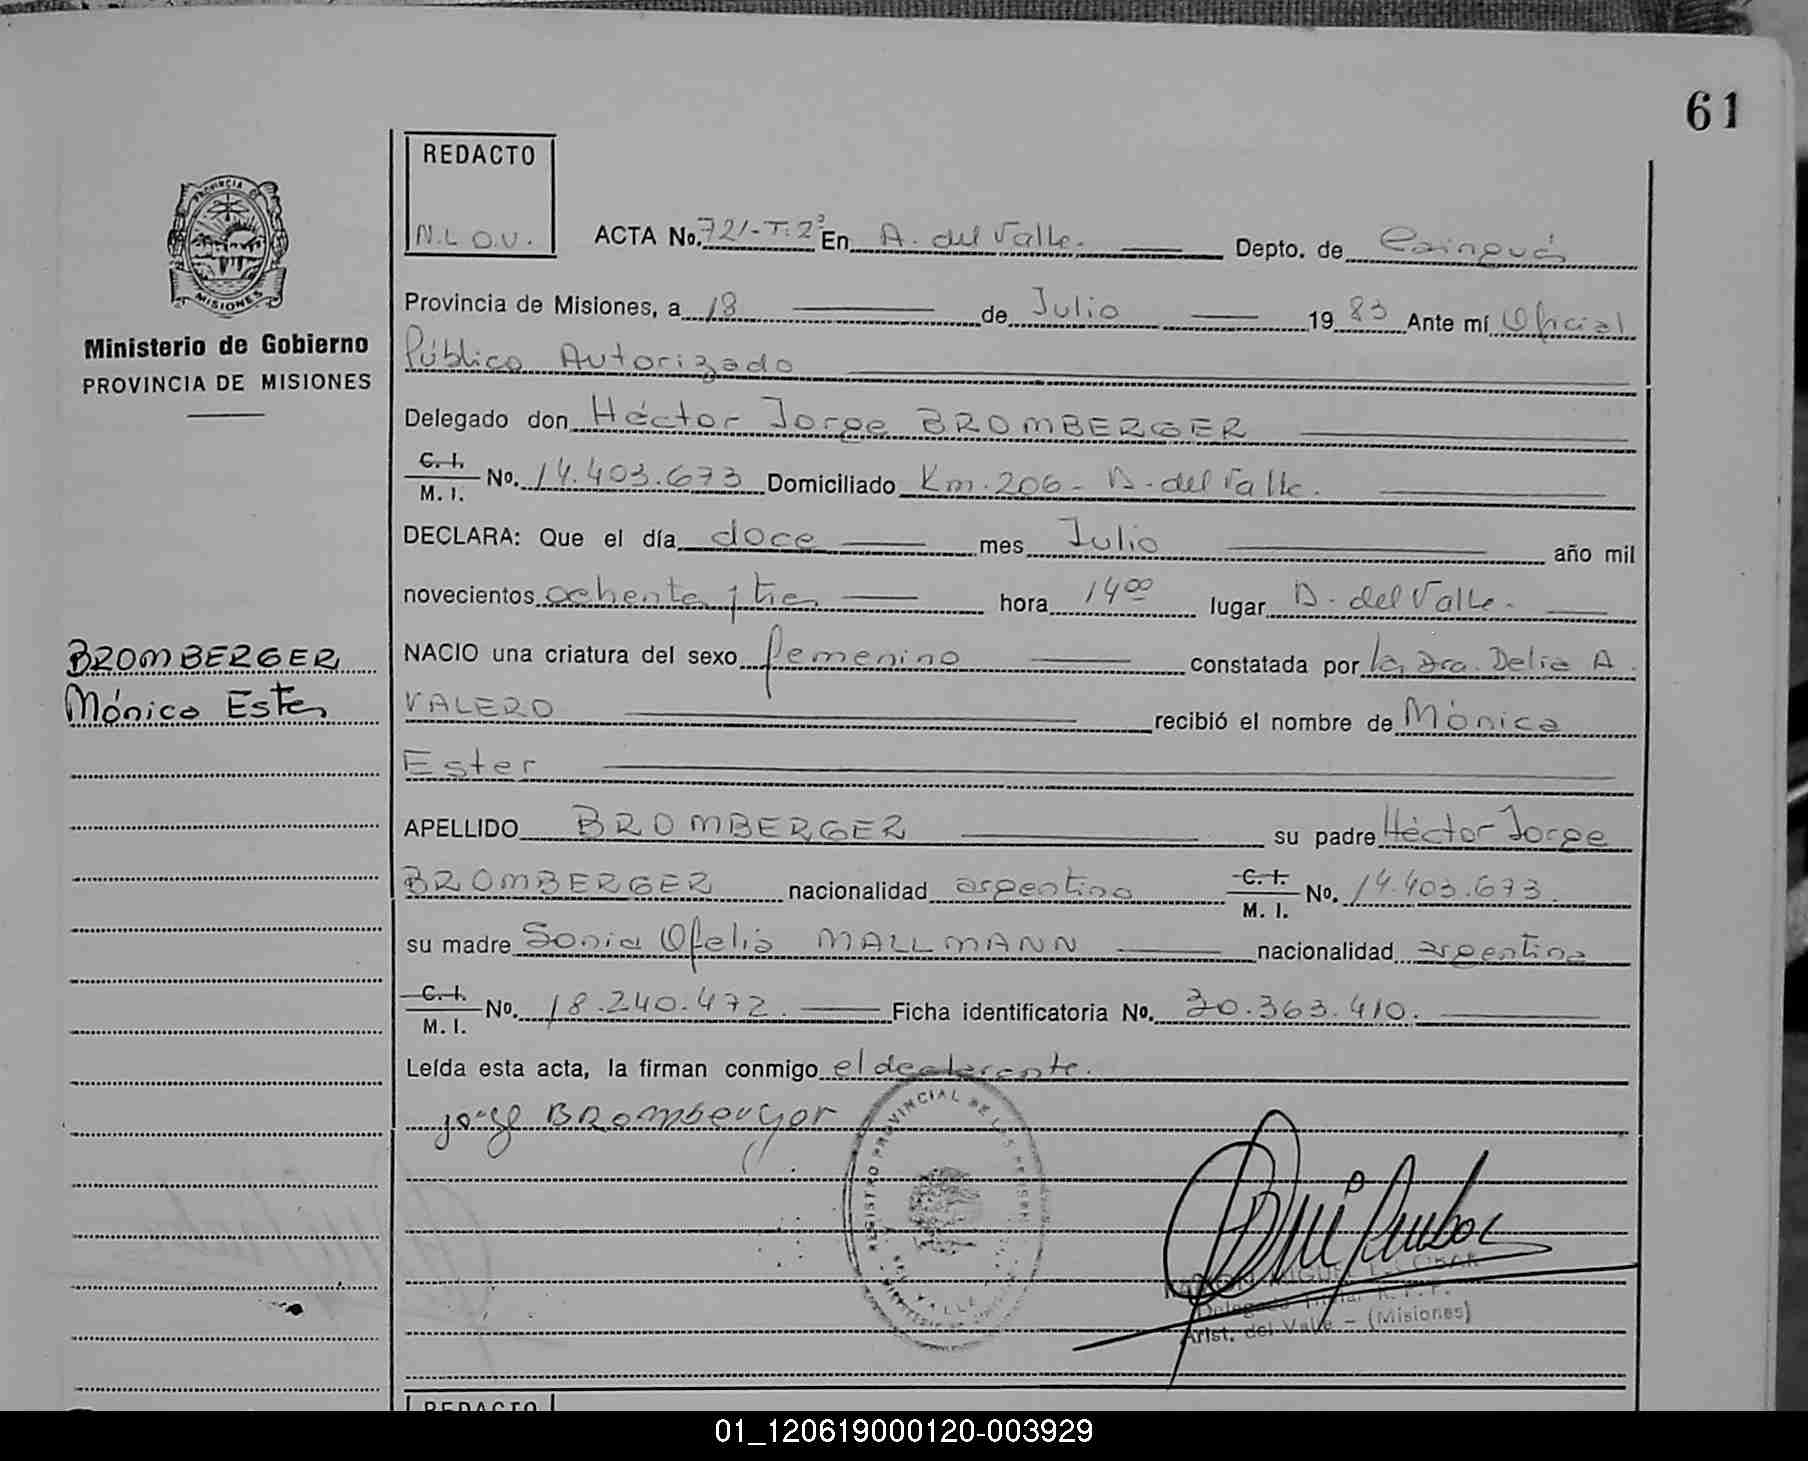 61
REDACTO
N.L O.V.
ACTA No. 721-T:2º En A. del Valle. Depto. de Cainguá
PROVINCIA DE
MISIONES
Provincia de Misiones, a 18 de Julio 1983 Ante mí Oficial
Ministerio de Gobierno
PROVINCIA DE MISIONES
Público Autorizado
Delegado don Héctor Jorge BROMBERGER
C. I.
M. I. No. 14.403.673 Domiciliado Km. 206 - A. del Valle.
DECLARA: Que el día doce mes Julio año mil
novecientos ochenta y tres hora 14 00 lugar A. del Valle.
BROMBERGER
Mónica Ester
NACIO una criatura del sexo femenino constatada por la Dra. Delia A.
VALERO recibió el nombre de Mónica
Ester
APELLIDO BROMBERGER su padre Héctor Jorge
BROMBERGER nacionalidad argentina C. I.
M. I. No. 14.403.673.
su madre Sonia Ofelia MALLMANN nacionalidad argentina
C. I.
M. I. No. 18.240.472. Ficha identificatoria No. 30.363.410.
Leída esta acta, la firman conmigo el declarante.
Jorge BRombergor
REGISTRO PROVINCIAL DE LAS PERSONAS
DEL VALLE
MIGUEL ESCOBAR
Delegado Titular R. P. P.
Arist. del Valle - (Misiones)
REDACTO
01_120619000120-003929